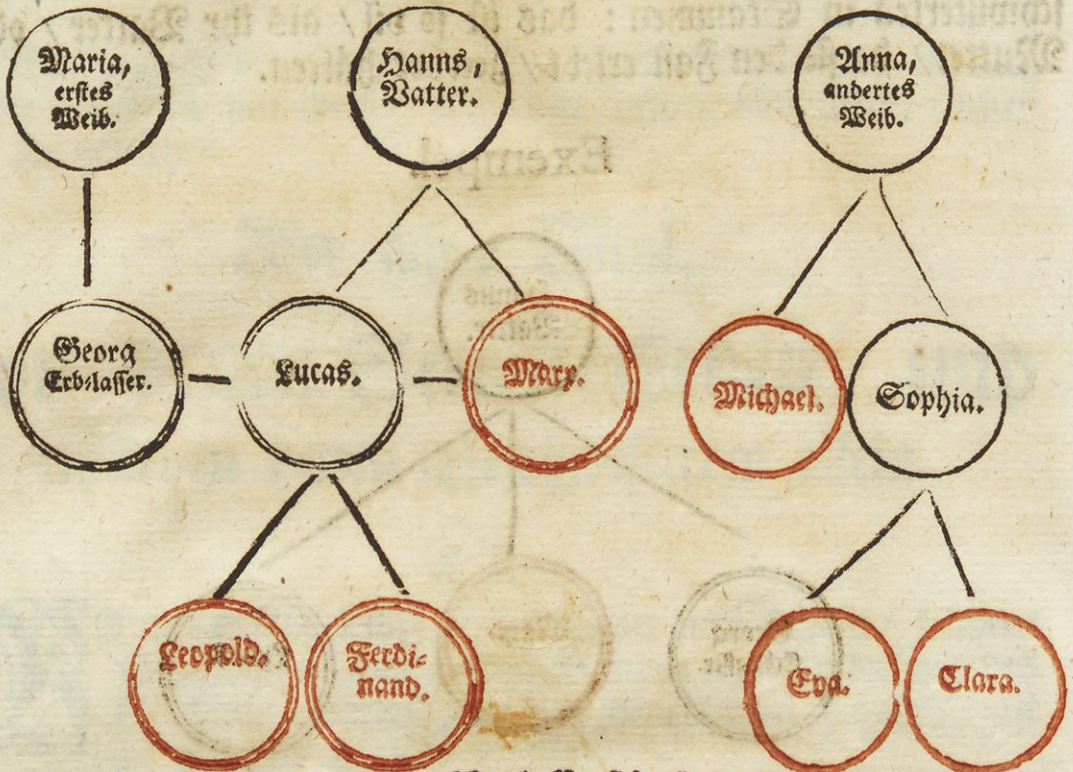 Maria,
erstes
Weib.
Hanns,
Vatter.
Anna,
andertes
Weib.
Georg
Erb-lasser.
Lucas.
Marx.
Michael.
Sophia.
Leopold.
Ferdi-
nand.
Eva.
Clara.